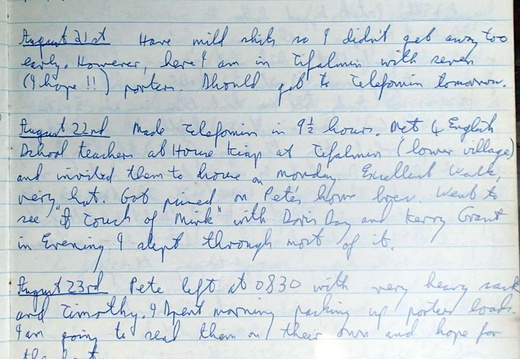 August 21st Have mild shits so I didn't get away too
early. However, here I am in Tifalmin with seven
(I hope !!) porters. Should get to Telefomin tomorrow.
August 22nd Made Telefomin in 9½ hours. Met 4 English
School teachers at House Kiap at Tifalmin (lower village)
and invited them to house on monday. Excellent walk,
very hot. Got pissed on Pete's home brew. Went to
see "A Touch of Mink" with Doris Day and Kerry Grant
in Evening I slept through most of it.
August 23rd Pete left at 0830 with very heavy sack
and Timothy. I spent morning packing up porter loads.
I am going to send them on their own and hope for
the best.